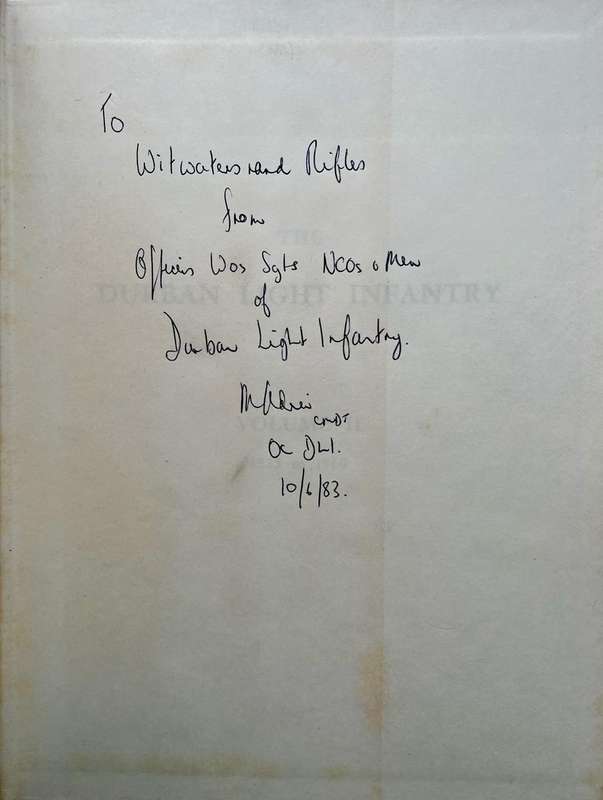 To
Witwatersrand Rifles
from
Officers Wos Sgts NCOs & Men
of
Durban Light Infantry.
CMDT
Oc DLI.
10/6/83.
THE
DURBAN LIGHT INFANTRY
VOLUME II